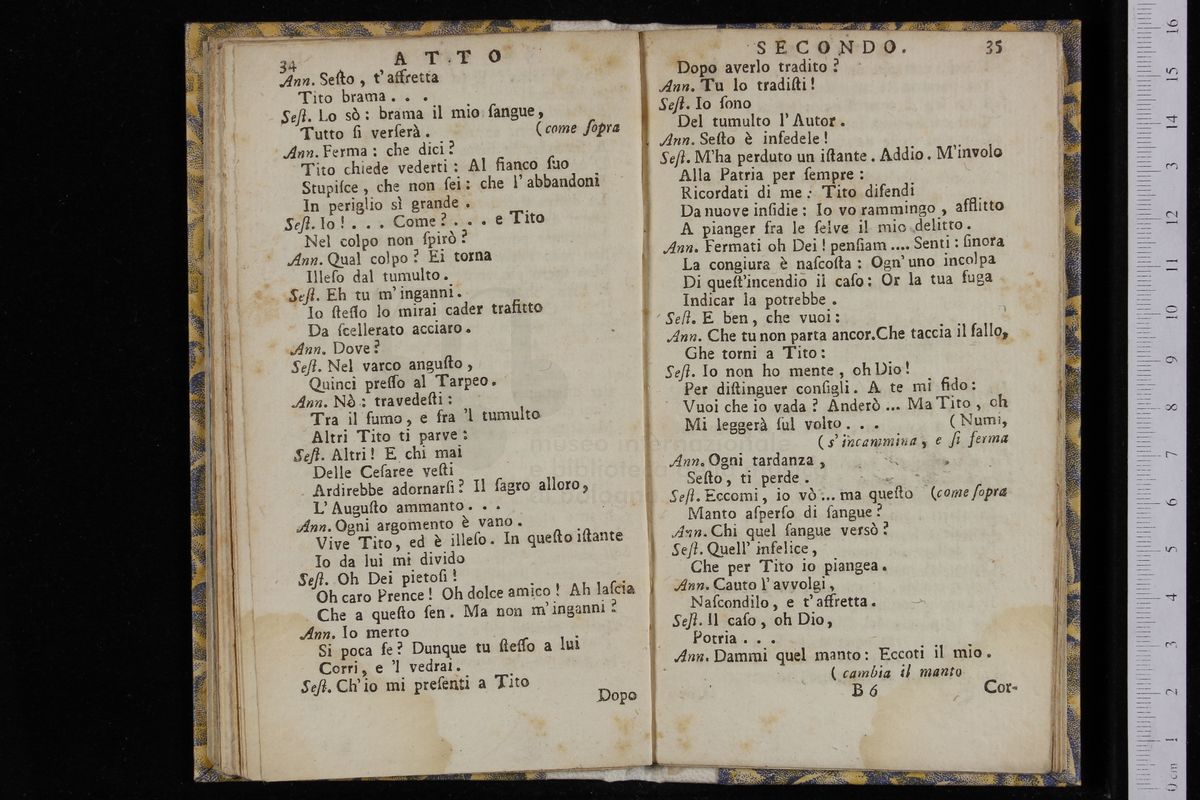 34 ATTO
Ann. Seſto, t'affretta
Tito brama...
Seſt. Lo sò: brama il mio ſangue,
Tutto ſi verſerà. (come ſopra
Ann. Ferma: che dici?
Tito chiede vederti: Al fianco ſuo
Stupiſce, che non ſei: che l'abbandoni
In periglio sì grande.
Seſt. Io!... Come?... e Tito
Nel colpo non ſpirò?
Ann. Qual colpo? Ei torna
Illeſo dal tumulto.
Seſt. Eh tu m'inganni.
Io ſteſſo lo mirai cader trafitto
Da ſcellerato acciaro.
Ann. Dove?
Seſt. Nel varco anguſto,
Quinci preſſo al Tarpeo.
Ann. Nò: travedeſti:
Tra il fumo, e fra 'l tumulto
Altri Tito ti parve:
Seſt. Altri! E chi mai
Delle Ceſaree veſti
Ardirebbe adornarſi? Il ſagro alloro,
L'Auguſto ammanto...
Ann. Ogni argomento è vano.
Vive Tito, ed è illeſo. In queſto iſtante
Io da lui mi divido
Seſt. Oh Dei pietoſi!
Oh caro Prence! Oh dolce amico! Ah laſcia
Che a queſto ſen. Ma non m'inganni?
Ann. Io merto
Si poca fe? Dunque tu ſteſſo a lui
Corri, e 'l vedrai.
Seſt. Ch'io mi preſenti a Tito
Dopo
SECONDO. 35
Dopo averlo tradito?
Ann. Tu lo tradiſti!
Seſt. Io ſono
Del tumulto l'Autor.
Ann. Seſto è infedele!
Seſt. M'ha perduto un iſtante. Addio. M'involo
Alla Patria per ſempre:
Ricordati di me: Tito difendi
Da nuove inſidie: Io vo rammingo, afflitto
A pianger fra le ſelve il mio delitto.
Ann. Fermati oh Dei! penſiam.... Senti: ſinora
La congiura è naſcoſta: Ogn'uno incolpa
Di queſt'incendio il caſo: Or la tua fuga
Indicar la potrebbe.
Seſt. E ben, che vuoi:
Ann. Che tu non parta ancor. Che taccia il fallo,
Ghe torni a Tito:
Seſt. Io non ho mente, oh Dio!
Per diſtinguer conſigli. A te mi fido:
Vuoi che io vada? Anderò... Ma Tito, oh
Mi leggerà ſul volto... (Numi,
(s'incammina, e ſi ferma
Ann. Ogni tardanza,
Seſto, ti perde.
Seſt. Eccomi, io vò... ma queſto (come ſopra
Manto aſperſo di ſangue?
Ann. Chi quel ſangue versò?
Seſt. Quell'infelice,
Che per Tito io piangea.
Ann. Cauto l'avvolgi,
Naſcondilo, e t'affretta.
Seſt. Il caſo, oh Dio,
Potria...
Ann. Dammi quel manto: Eccoti il mio.
(cambia il manto
B 6 Cor-
museo internazionale
e biblioteca
di bologna
0 cm 1 2 3 4 5 6 7 8 9 10 11 12 13 14 15 16